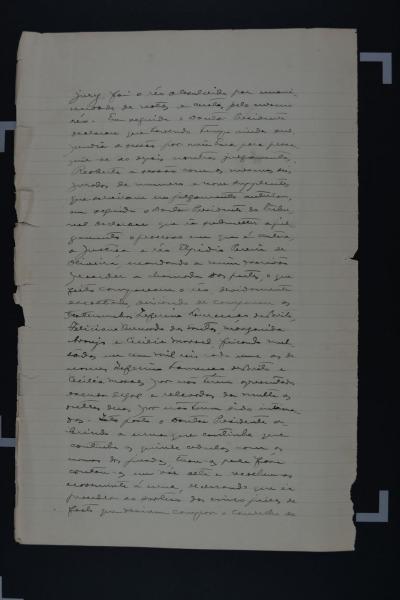 jury, foi o réo absolvido por unani-
midade de votos e custas pelo mesmo
réo. Em seguida o Doutor Presidente
declarou que havendo tempo ainda sus-
pendia a sessão por minutos para prose-
guir-se ao após noutros julgamentos.
Reaberta a sessão com os mesmos
jurados de numero e nove supplentes
que serviram no julgamento anterior,
em seguida o Doutor Presidente do Tribu-
nal declarou que ia submetter a jul-
gamento o processo em que é autora
a Justiça e réo Elpidio Pereira de
Oliveira mandando a mim escrivão
proceder a chamada das partes, o que
feito compareceu o réo devidamente
escoltado, deixando de comparecer os
testemunhas Zeferino Lourenço de Brito,
Feliciano Bernardo dos Santos, Margarida
Araujo e Cecilia Moraes, ficando mul-
tados em cem mil reis cada uma as de
nomes Zeferino Lourenço de Brito e
Cecilia Moraes por não terem apresentado
escusa legal e relevados da multa os
outros dois, por não terem sido intima-
dos. Isto posto o Doutor Presidente a-
brindo a urna que continha
as quinze cedulas com os
nomes dos jurados,
contou-as em voz alta e recolheu-as
novamente á urna, declarando que ia
proceder ao sorteio dos cinco juizes de
facto que deviam compor o Conselho de